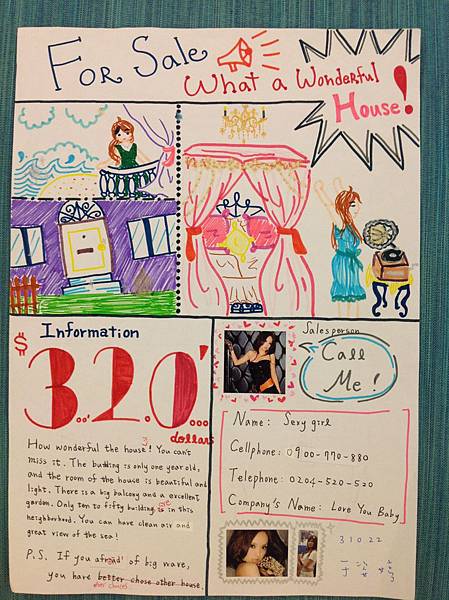 For Sale
What a Wonderful
House!
Information
$3...2.0'...
dollars
How wonderful the house! You can't
miss it. The budding is only one year old,
and the room of the house is beautiful and
light. There is a big balcony and a excellent
garden. Only ten to fifty building is in this
are
neighborhood. You can have clean air and
great view of the sea!
P.S. If you afraid of big wave,
you have better chose other house.
other choices
Salesperson
Call
Me!
Name: Sexy girl
Cellphone: 0900-770-880
Telephone: 0204-520-520
Company's Name: Love You Baby
31022